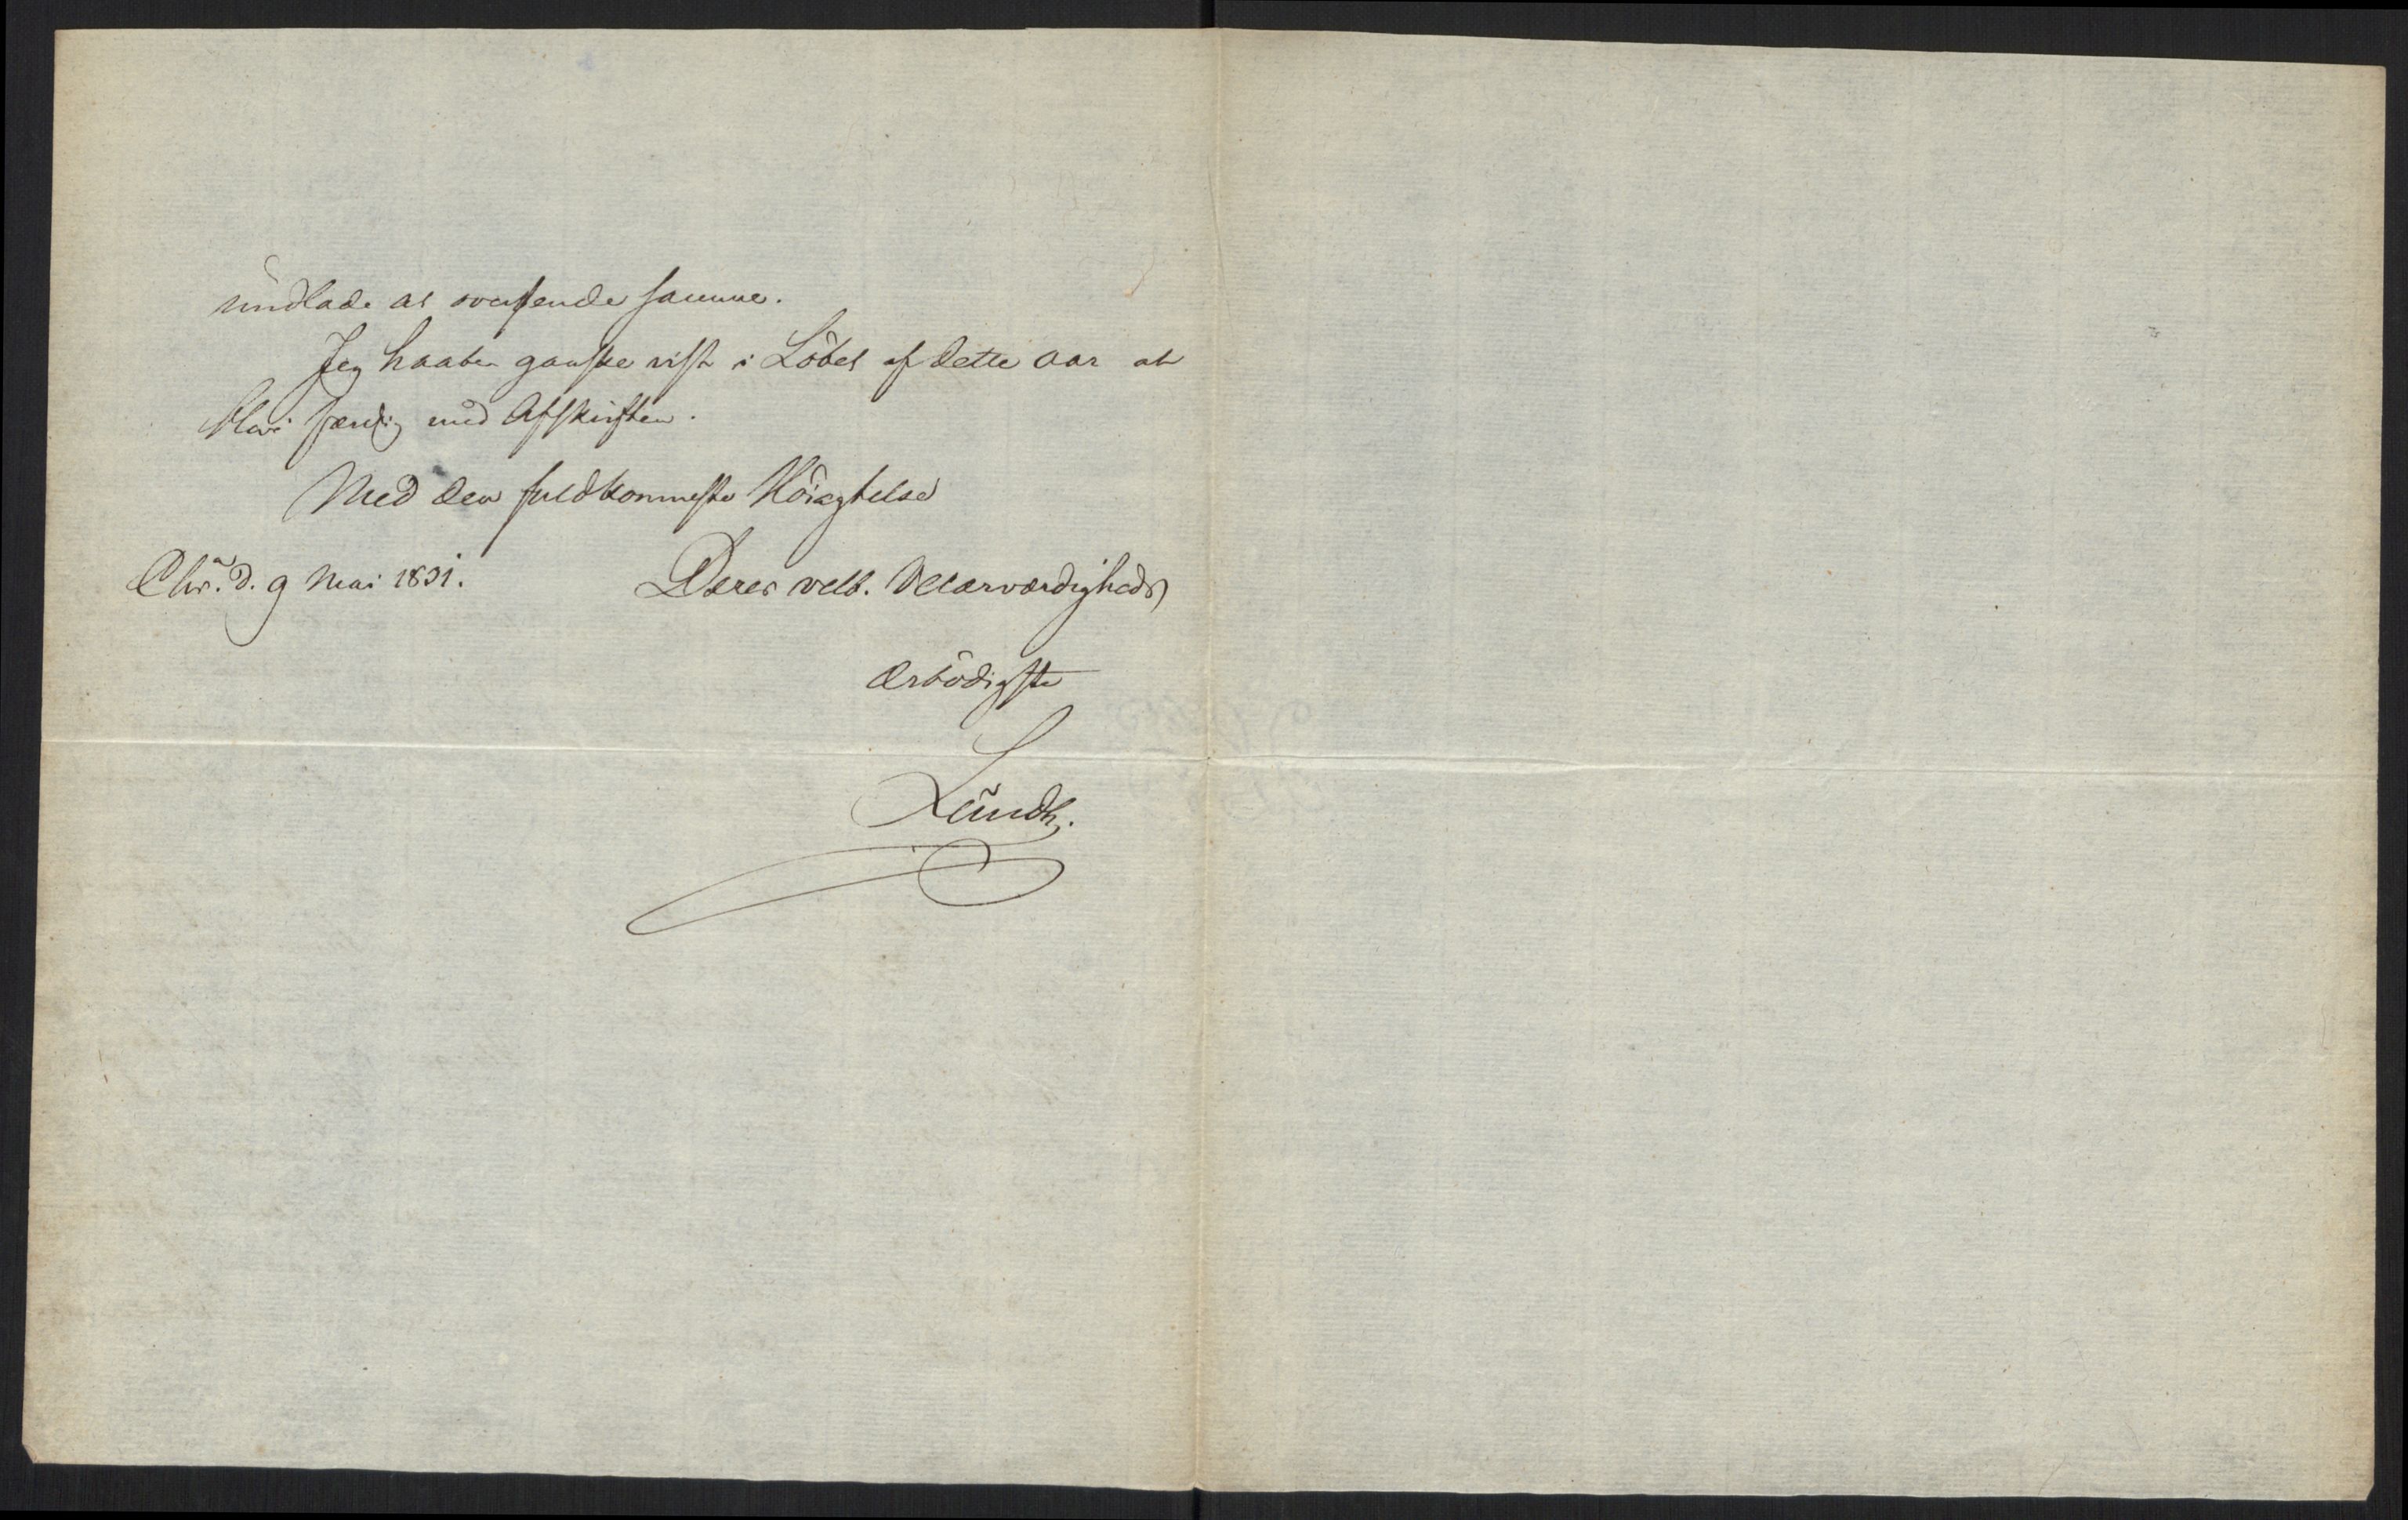 undlade at oversende samme.
Jeg haaber ganske vist i Löbet af dette Aar at
blive færdig med Afskriften.
Med den fuldkomneste Höiagtelse
Chr̃. d. 9 Mai 1831.
Deres velb. Velærværdigheds
ærbödigste
Lundh.